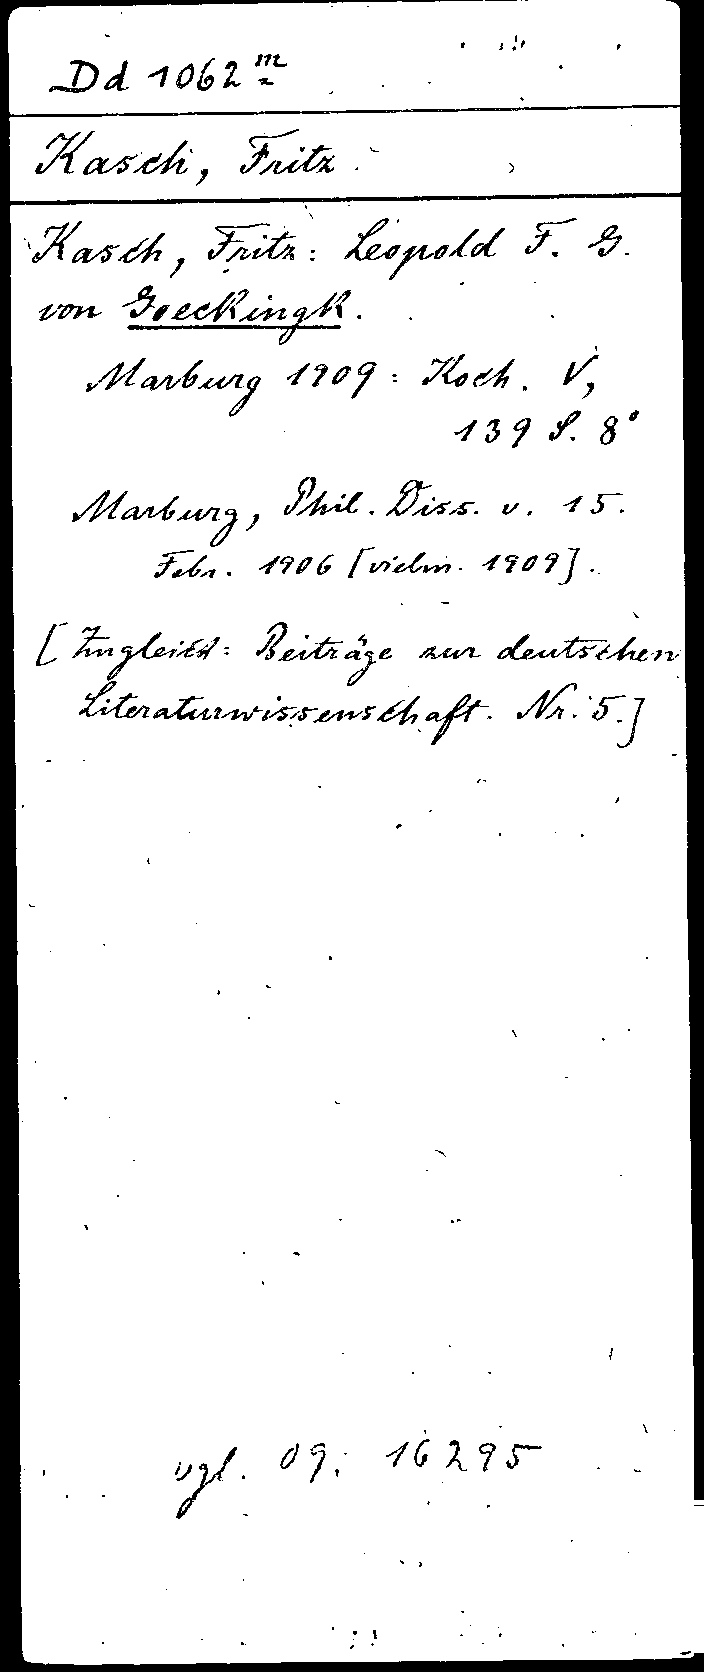 Dd 1062 m
Kasch, Fritz
Kasch, Fritz: Leopold F. G.
von Goeckingk.
Marburg 1909: Koch. V,
139 S. 8°
Marburg, Phil. Diss. v. 15.
Febr. 1906 [vielm. 1909].
[Zugleich: Beiträge zur deutschen
Literaturwissenschaft. Nr. 5.]
vgl. 09. 16295